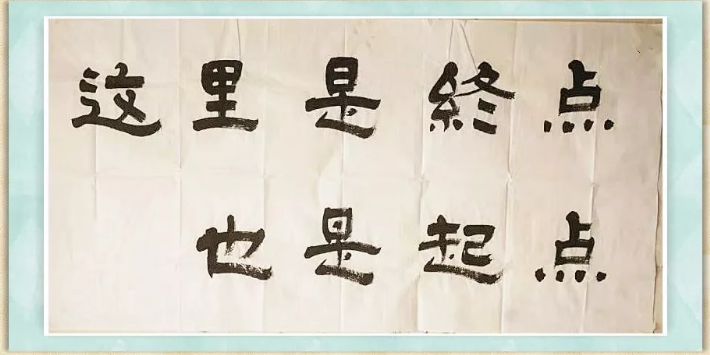 这里是终点
也是起点